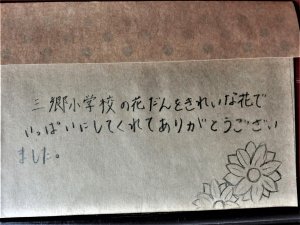 三郷小学校の花だんをきれいな花で
いっぱいにしてくれてありがとうござい
ました。